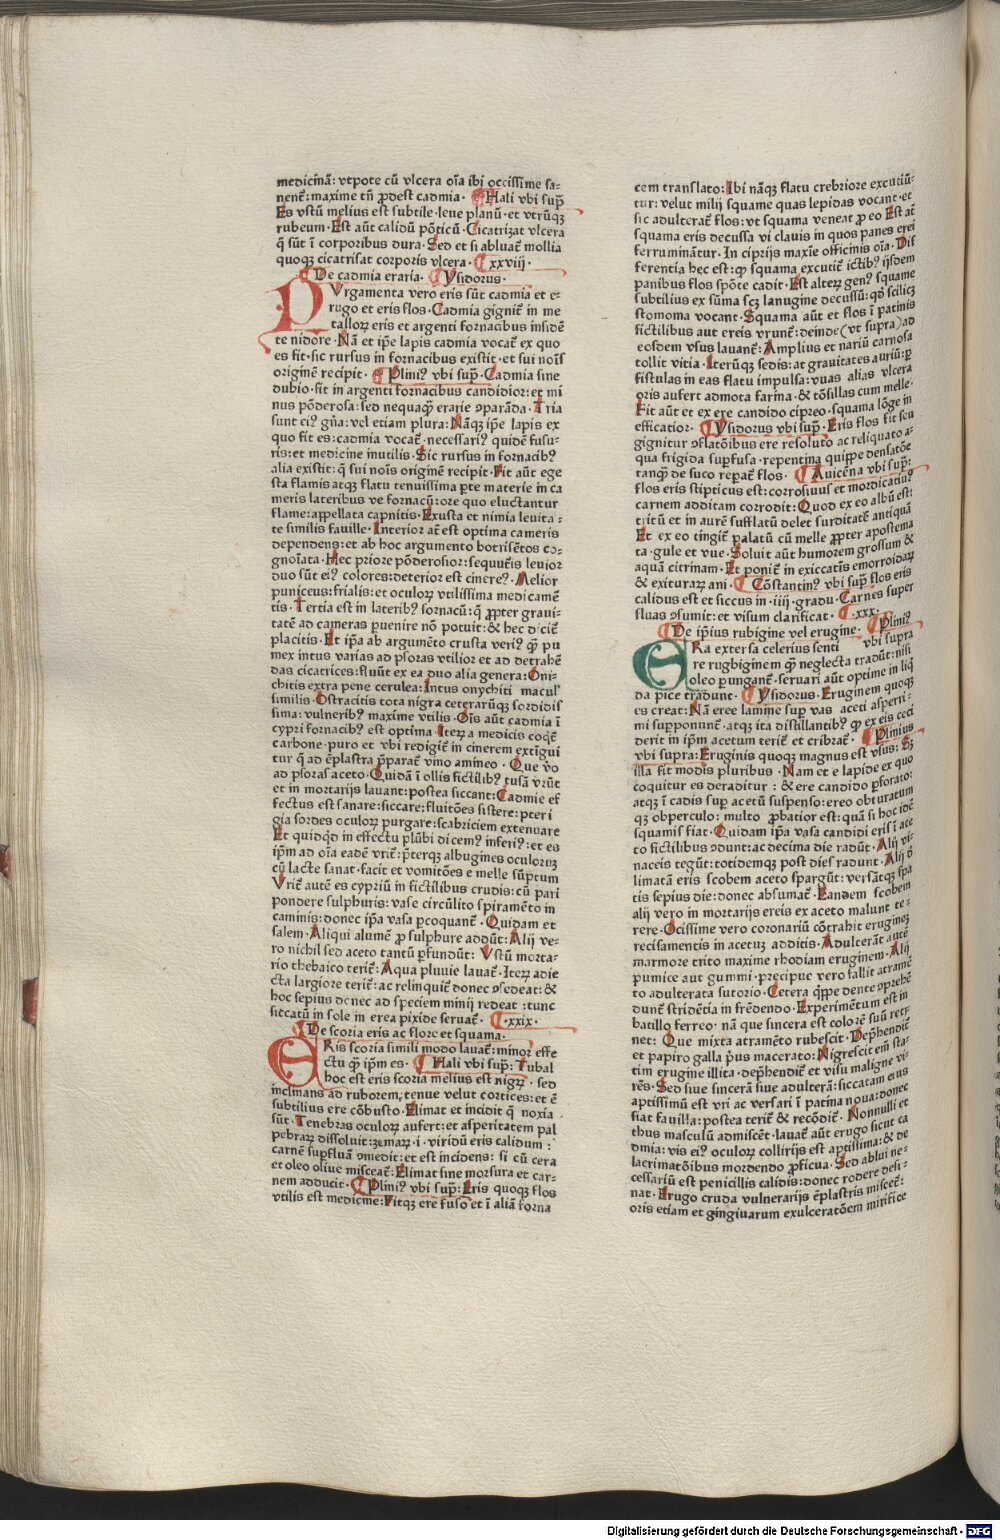 medicinā: vtpote cū vlcera oīa ibi occissime sa-
nent᷑: maxime tn̄ ꝓdest cadmia · Hali vbi sup̄
Es vstū melius est subtile · leue planū · et vtrūqꝫ
rubeum · Est aūt calidū pōticū · Cicatrizat vlcera
q̄ sūt ī corporibus dura · Sed et si abluat᷑ mollia
quoqꝫ cicatrisat corporis vlcera · xxviij ·
De cadmia eraria · Ysidorus ·
PVrgamenta vero eris sūt cadmia et e-
rugo et eris flos · Cadmia gignit᷑ in me
tallorꝫ eris et argenti fornacibus insidē
te nidore · Nā et ip̄e lapis cadmia vocat᷑ ex quo
es fit · sic rursus in fornacibus existit · et sui noīs
originē recipit · Pliniꝰ vbi sup̄ · Cadmia sine
dubio · fit in argenti fornacibus candidior: et mi
nus pōderosa: sed nequaq̄ erarie ↄparāda · Tria
sunt eiꝰ gn̄a: vel etiam plura: Nāqꝫ ip̄e lapis ex
quo fit es: cadmia vocat᷑ · necessariꝰ quidē fusu-
ris: et medicine inutilis · Sic rursus in fornacibꝰ
alia existit: q̄ sui noīs originē recipit · Fit aūt ege
sta flamis atqꝫ flatu tenuissima ꝑte materie in ca
meris lateribus ve fornacū: ore quo eluctantur
flame: appellata capnitis · Exusta et nimia leuita-
te similis fauille · Interior at᷑ est optima cameris
dependens: et ab hoc argumento botrisētos co-
gnoīata · Hec priore pōderosior: sequut᷑is leuior
duo sūt eiꝰ colores: deterior est cinereꝰ · Melior
puniceus: frialis: et oculorꝫ vtilissima medicamē
tis · Tertia est in lateribꝰ fornacū: q̄ ꝓpter graui-
tatē ad cameras ꝑuenire nō potuit: & hec dicit᷑
placitis · Et ip̄a ab argumēto crusta veriꝰ q̄ pu
mex intus varias ad psoras vtilior et ad detrahē
das cicatrices: fluūt ex ea duo alia genera: Oni-
chitis extra pene cerulea: Intus onychiti macul'
similis · Ostracitis tota nigra ceterarūqꝫ sordidis
sima: vulneribꝰ maxime vtilis · Oīs aūt cadmia ī
cypri fornacibꝰ est optima · Iterꝫ a medicis coqt᷑
carbone · puro et vbi redigit᷑ in cinerem extīgui
tur q̄ ad ēplastra p̄parat᷑ vino amineo · Que v̄o
ad psoras aceto · Quidā ī ollis fictilibꝰ tusā vrūt
et in mortarijs lauant: postea siccant: Cadmie ef
fectus est sanare: siccare: fluitōes sistere: pteri
gia sordes oculorꝫ purgare: scabriciem extenuare
Et quidqd in effectu plūbi dicemꝰ inferiꝰ: et es
ip̄m ad oīa eadē vrit᷑: p̄terqꝫ albugines oculorꝫ
cū lacte sanat · facit et vomitōes e melle sūptum
Vrit᷑ autē es cypriū in fictilibus crudis: cū pari
pondere sulphuris: vase circūlito spiramēto in
caminis: donec ip̄a vasa ꝑcoquant᷑ · Quidam et
salem · Aliqui alumē ꝓ sulphure addūt: Alij ve-
ro nichil sed aceto tantū ꝑfundūt: Vstū morta-
rio thebaico terit᷑: Aqua pluuie lauat᷑ · Iterꝫ adie
cta largiore terit᷑: ac relinquit᷑ donec ↄsedeat: &
hoc sepius donec ad speciem minij redeat: tunc
siccatū in sole in erea pixide seruat᷑ · xxix ·
De scoria eris ac flore et squama ·
ERis scoria simili modo lauat᷑: minor effe
ctu q̄ ip̄m es · Hali vbi sup̄: Tubal
hoc est eris scoria melius est nigrꝫ · sed
inclinans ad ruborem, tenue velut cortices: et ē
subtilius ere cōbusto · Elimat et incidit q̄ noxia
sūt · Tenebras oculorꝫ aufert: et asperitatem pal
pebrarꝫ dissoluit: zemarꝫ · i · viridū eris calidum:
carnē suꝑfluā ↄmedit: et est incidens: si cū cera
et oleo oliue misceat᷑: Elimat sine morsura et car-
nem adducit · Pliniꝰ vbi sup̄: Eris quoqꝫ flos
vtilis est medicine: Fitqꝫ ere fuso et ī aliā forna
cem translato: Ibi nāqꝫ flatu crebriore excutiū-
tur: velut milij squame quas lepidas vocant · et
sic adulterat᷑ flos: vt squama veneat ꝓ eo Est at᷑
squama eris decussa vi clauis in quos panes erei
ferruminātur · In ciprijs maxīe officinis oīa · Dif
ferentia hec est: ꝙ squama excutit᷑ ictibꝰ ijsdem
panibus flos spōte cadit · Est alterꝫ genꝰ squame
subtilius ex sūma scꝫ lanugine decussū: qd̄ scilicꝫ
stomoma vocant · Squama aūt et flos ī patinis
fictilibus aut ereis vrunt᷑: deinde (vt supra) ad
eosdem vsus lauant᷑: Amplius et nariū carnosa
tollit vitia · Iterūqꝫ sedis: at grauitates auriū: ꝑ
fistulas in eas flatu impulsa: vuas alias vlcera
oris aufert admota farina · & tōsillas cum melle ·
Fit aūt et ex ere candido cipreo · squama lōge in
efficatior · Ysidorus vbi sup̄ · Eris flos fit seu
gignitur ↄflatōibus ere resoluto ac reliquato a-
qua frigida suꝑfusa · repentina quippe densatōe
tanq̄ de suco reperat᷑ flos · Auicēna vbi sup̄:
flos eris stipticus est: corrosiuus et mordicatiuꝰ
carnem additam corrodit: Quod ex eo albū est:
tritū et in aurē sufflatū delet surditatē antiquā
Et ex eo tingit᷑ palatū cū melle ꝓpter apostema
ta · gule et vue · Soluit aūt humorem grossum &
aquā citrinam · Et ponit᷑ in exiccatiōs emorroidarꝫ
& exiturarꝫ ani · Cōstantinꝰ vbi sup̄ flos eris
calidus est et siccus in · iiij · gradu · Carnes super
fluas ↄsumit: et visum clarificat · xxx ·
De ip̄ius rubigine vel erugine · Pliniꝰ
vbi supra
ERa extersa celerius senti
re rugbiginem q̄ neglecta tradūt: nisi
oleo perungant᷑ · seruari aūt optime in liq̄
da pice tradunt · Ysidorus · Eruginem quoqꝫ
es creat: Nā eree lamine suꝑ vas aceti asperri-
mi supponunt᷑ · atqꝫ ita distillantibꝰ ꝙ ex eis ceci
derit in ip̄m acetum terit᷑ et cribrat᷑ · Plinius
vbi supra: Eruginis quoqꝫ magnus est vsus: Sꝫ
illa fit modis pluribus · Nam et e lapide ex quo
coquitur es deraditur: & ere candido ꝑforato:
atqꝫ ī cadis suꝑ acetū suspenso: ereo obturatum
qꝫ obperculo: multo ꝓbatior est: quā si hoc idē
squamis fiat · Quidam ip̄a vasa candidi eris ī ace
to fictilibus ↄdunt: ac decima die radūt · Alij vi-
naceis tegūt: totidemqꝫ post dies radunt · Alij d̄
limatā eris scobem aceto spargūt: versātqꝫ spa
tis sepius die: donec absumat᷑ · Eandem scobem
alij vero in mortarijs ereis ex aceto malunt te-
rere · Ocissime vero coronariū cōtrahit erugineꝫ
recisamentis in acetuꝫ additis · Adulterāt autē
marmore trito maxime rhodiam eruginem · Alij
pumice aut gummi · precipue vero fallit atramē
to adulterata sutorio · Cetera q̄ppe dente ↄprehē
dunt᷑ stridētia in frēdendo · Experimētum est in
batillo ferreo: nā que sincera est colorē suū reti
net: Que mixta atramēto rubescit · Dep̄hendit᷑
et papiro galla p̄us macerato: Nigrescit em̄ sta-
tim erugine illita · dep̄hendit᷑ et visu maligne vi-
rēs · Sed siue sincerā siue adulterā: siccatam eius
aptissimū est vri ac versari ī patina noua: donec
fiat fauilla: postea terit᷑ & recōdit᷑ · Nonnulli et
thus masculū admiscēt · lauat᷑ aūt erugo sicut ca
dmia: vis eiꝰ oculorꝫ collirijs est aptissima: & de
lacrimatōibus mordendo ꝓficua · Sed ablui ne-
cessariū est penicillis calidis: donec rodere desi-
nat · Erugo cruda vulnerarijs ēplastris miscet᷑:
oris etiam et gingiuarum exulceratōem mirifice
Digitalisierung gefördert durch die Deutsche Forschungsgemeinschaft - DFG